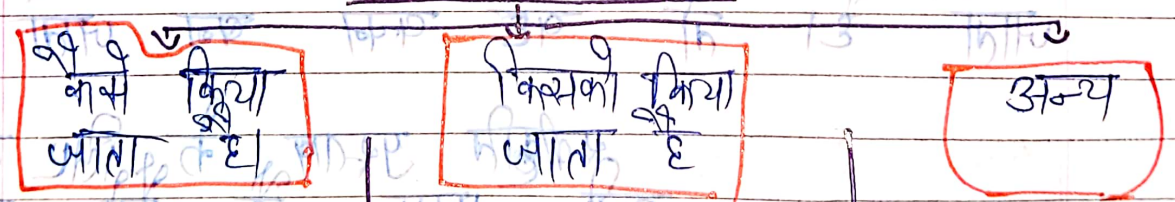 कैसे किया
जाता है।
किसको किया
जाता है
अन्य